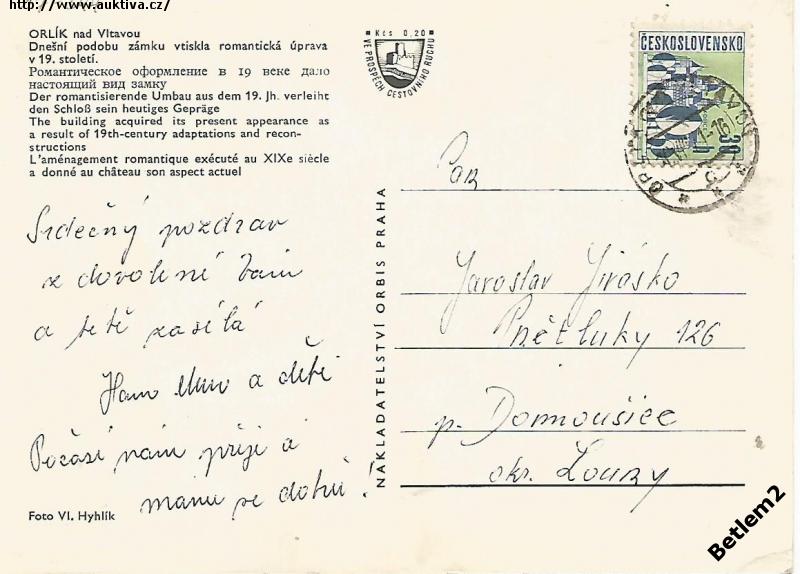 http://www.auktiva.cz/
ORLÍK nad Vltavou
Dnešní podobu zámku vtiskla romantická úprava
v 19. století.
Романтическое оформление в 19 веке дало
настоящий вид замку
Der romantisierende Umbau aus dem 19. Jh. verleiht
den Schloß sein heutiges Gepräge
The building acquired its present appearance as
a result of 19th-century adaptations and recon-
structions
L'aménagement romantique exécuté au XIXe siècle
a donné au château son aspect actuel
Srdečný pozdrav
z dovolené Vám
a tetě zasílá
a děti
Počasí nám přeje a
máme se dobře!
Foto Vl. Hyhlík
NAKLADATELSTVÍ ORBIS PRAHA
Kčs 0,20
VE PROSPĚCH CESTOVNÍHO RUCHU
ČESKOSLOVENSKO
30 h
Jaroslav Jirásko
Pnětluky 126
p. Domoušice
okr. Louny
Betlem2